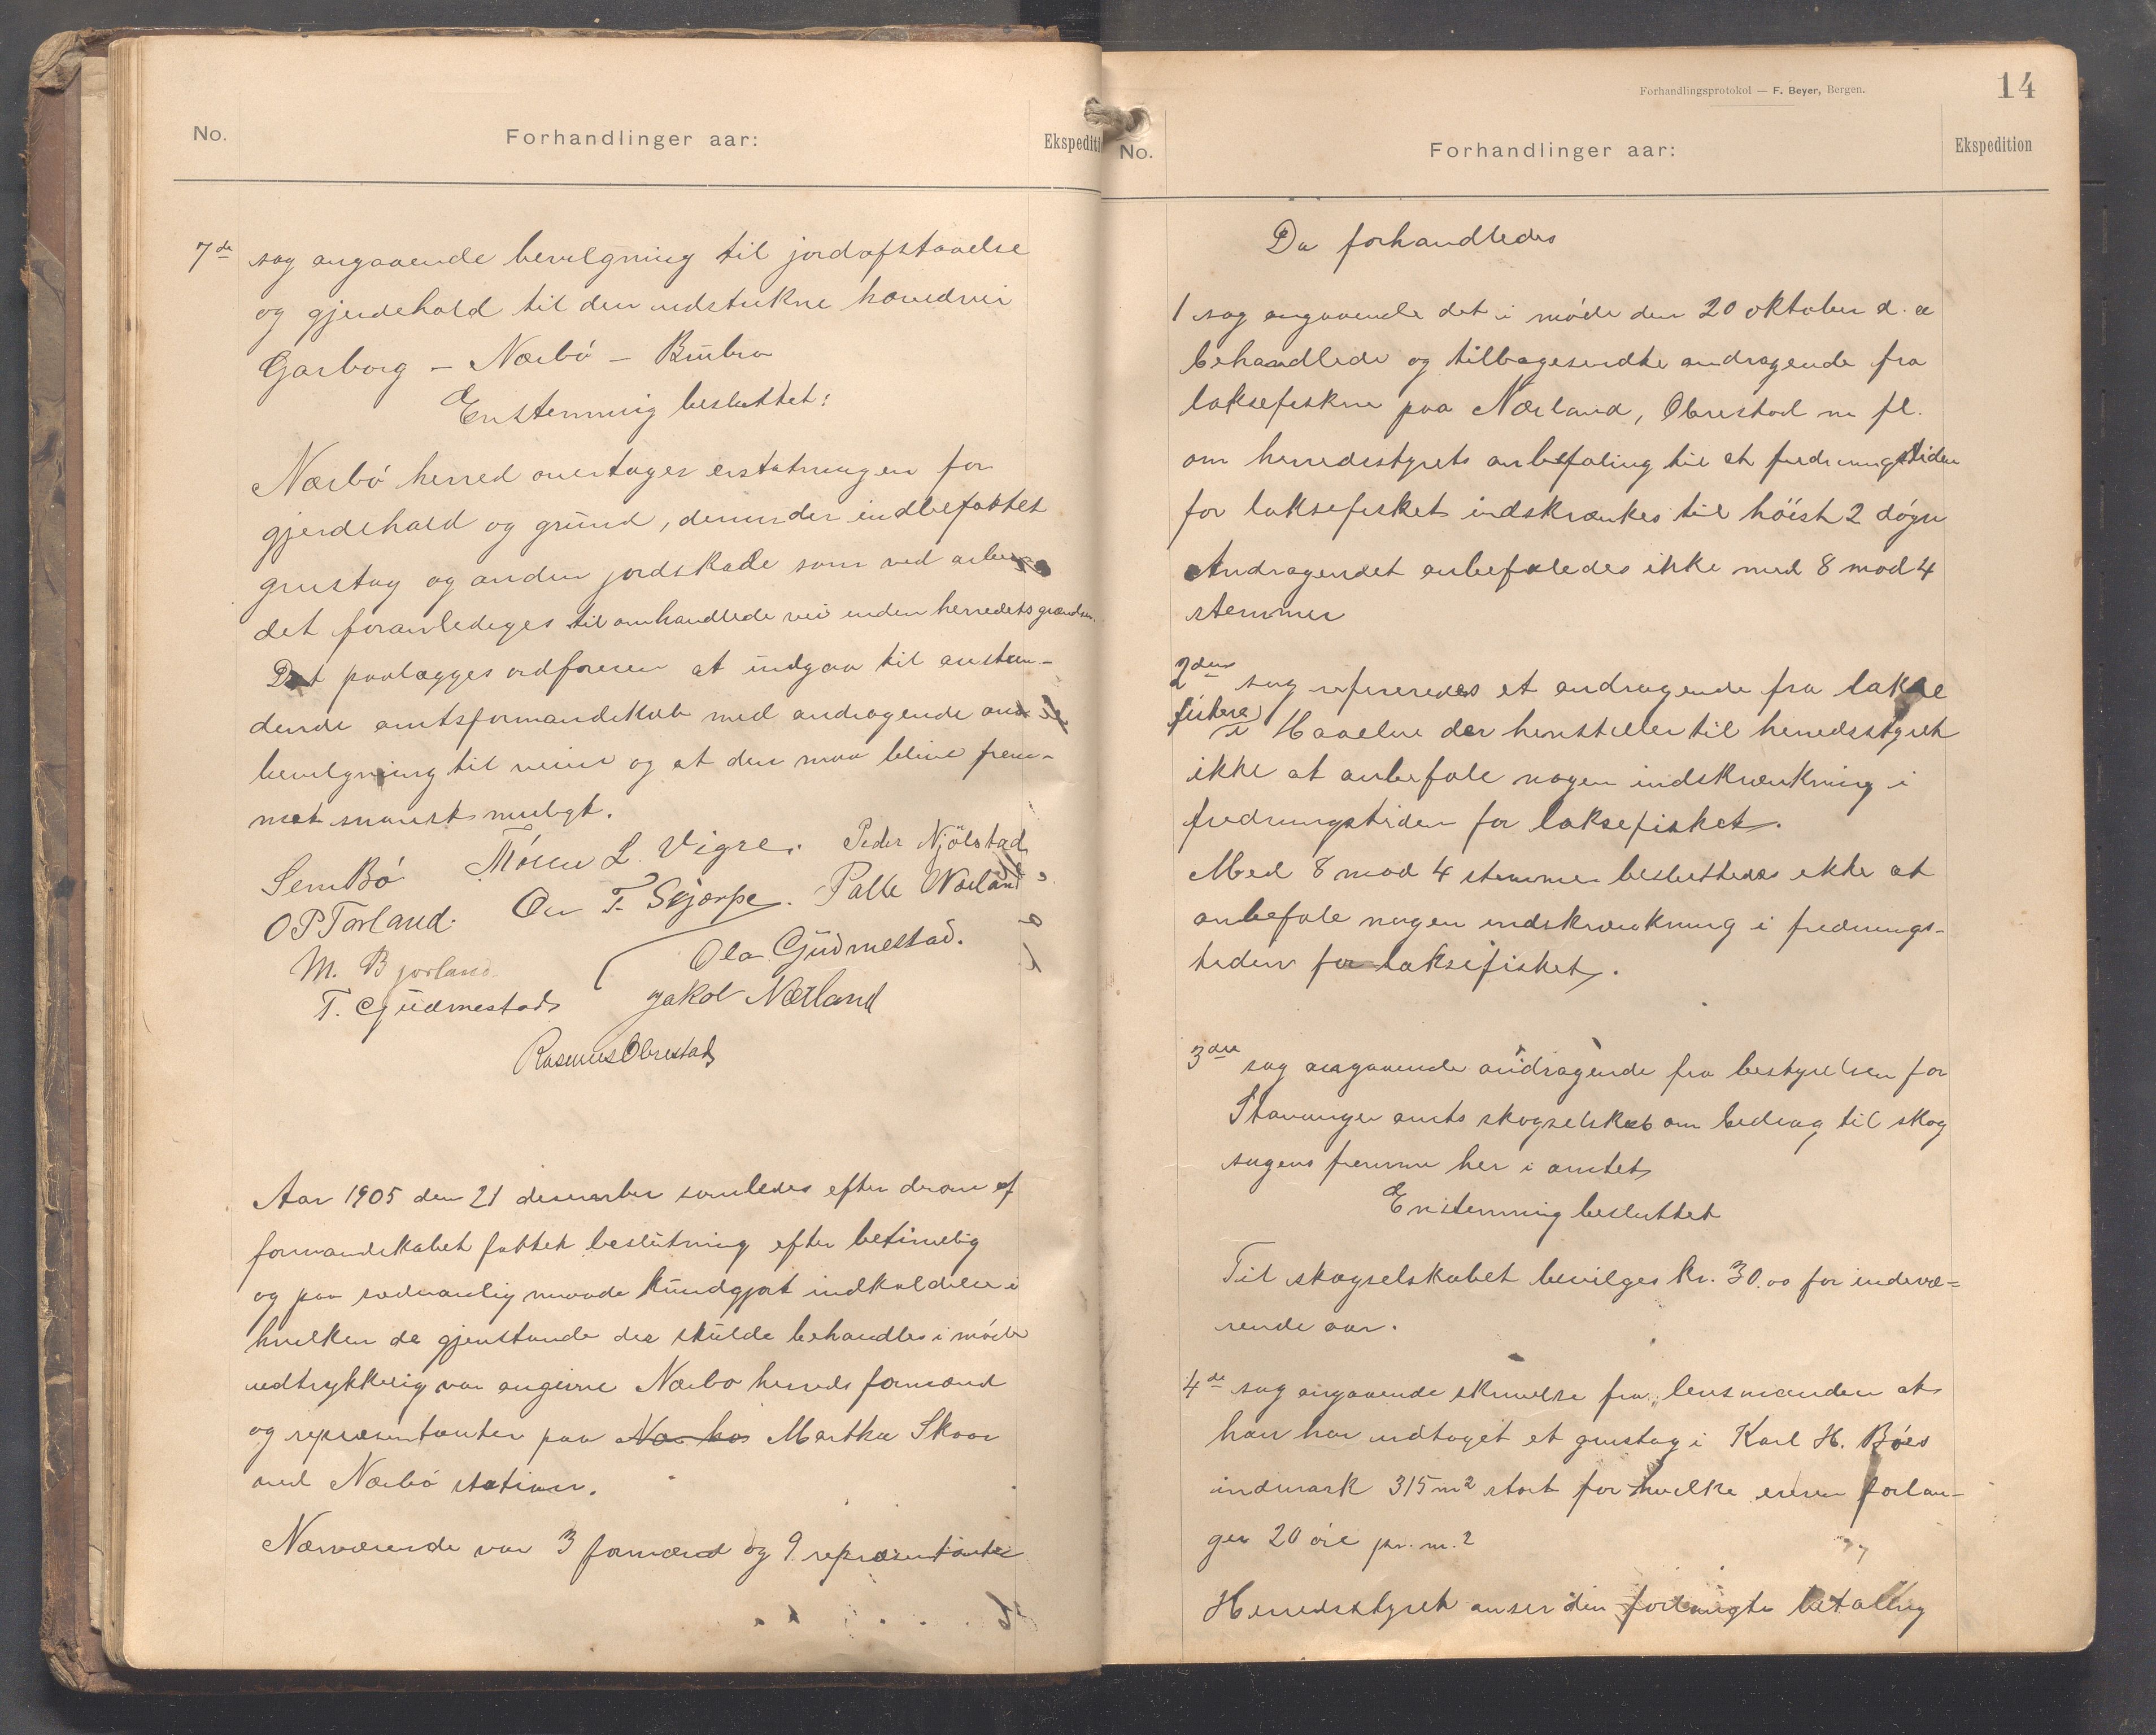 No.
Forhandlinger aar:
Ekspediti
7de sag angaaende bevilgning til jordafstaaelse
og gjerdehold til den udstukne hovedvei
Garborg – Nærbö – Brubro
Enstemmig besluttet:
Nærbö herred overtager erstatningen for
gjerdehold og grund, derunder indbefattet
grustag og anden jordskade som ved arbei
det foranlediges til omhandlede vei inden herredets grændser.
Det paalægges ordføreren at indgaa til anstun-
dende amtsformandskab med andragende om
bevilgning til veien og at den maa blive frem-
met snarest muligt.
Sem Bö Tönn L. Vigre. Peder Njölstad
O P Torland. Ou T. Skjærpe. Palle Nærland
M. Bjorland Ola Gudmestad.
T. Gudmestad Jakob Nærland
Rasmus Obrestad
Aar 1905 den 21 desember samledes efter derom af
formandskabet fattet beslutning efter betimelig
og paa sædvanlig maade kundgjort indkaldelse i
hvilken de gjenstande der skulde behandles i møde
udtrykkelig var angivne Nærbo herreds formænd
og repræsentanter paa Martha Skaar
ved Nærbö station.
Nærværende var 3 formænd og 9 repræsentanter
Forhandlingsprotokol — F. Beyer, Bergen.
14
No.
Forhandlinger aar:
Ekspedition
Da forhandledes
1 sag angaaende det i möde den 20 oktober d. a
behandlede og tilbagesendte andragende fra
laksefiskere paa Nærland, Obrestad m fl.
om herredsstyrets anbefaling til at fredningstiden
for laksefisket indskrænkes til höist 2 dögn
Andragendet anbefaledes ikke med 8 mod 4
stemmer
2den sag refereredes et andragende fra lakse
fiskere i Haaelve der henstiller til herredsstyret
ikke at anbefale nogen indskrænkning i
fredningstiden for laksefisket.
Med 8 mod 4 stemmer besluttedes ikke at
anbefale nogen indskrænkning i frednings-
tiden for laksefisket.
3die sag angaaende andragende fra bestyrelsen for
Stavanger amts skogselskab om bedrag til skog
sagens fremme her i amtet
Enstemmig besluttet
Til skogselskabet bevilges kr. 30.00 for indevæ=
rende aar.
4de sag angaaende skrivelse fra lensmanden at
han har udtaget et grustag i Karl H. Böes
indmark 315 m2 stort for hvilke eieren forlan-
ger 20 öre pr. m.2
Herredsstyret anser den forlangte betaling